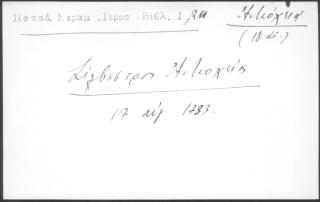 Παπαδ Κεραμ .Ιεροσ .Βιβλ. Ι, 211
Ἀντιόχεια
(18 αἰ.)
Σίλβεστρος Ἀντιοχείας
17 αὐγ 1733.